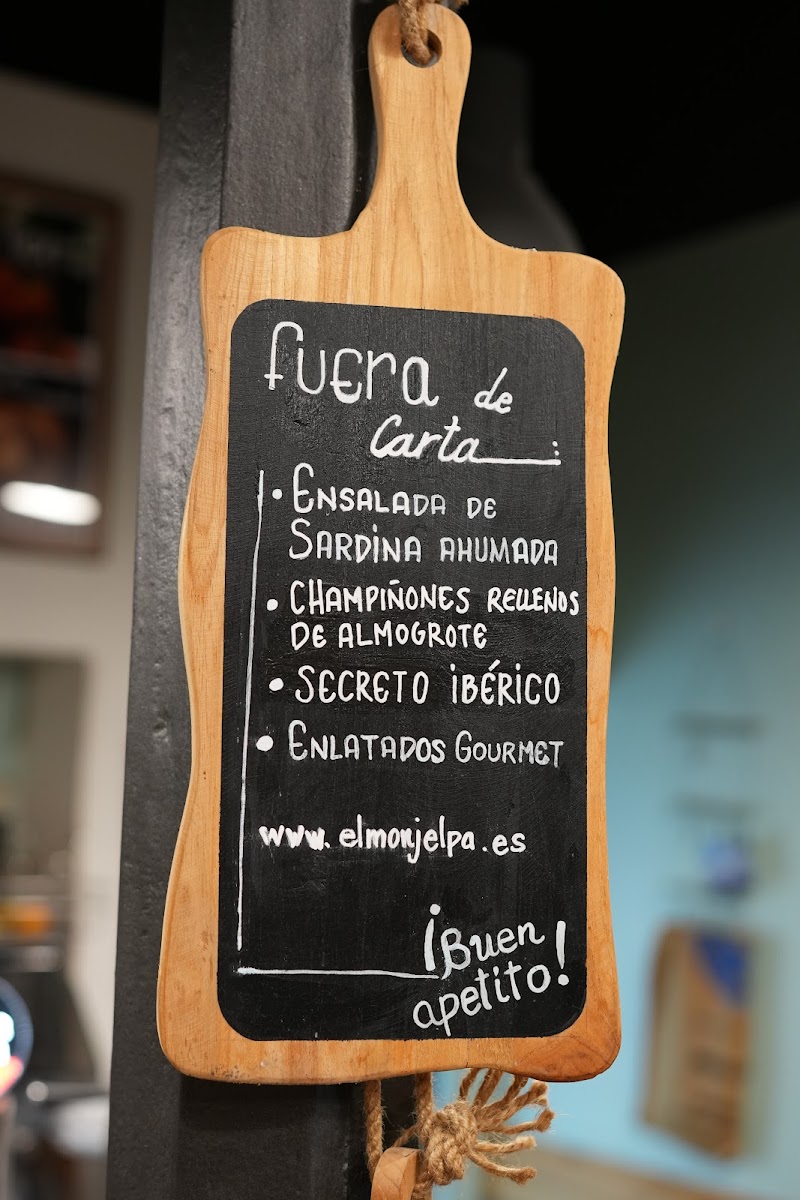 fuera de
Carta :
• ENSALADA DE
SARDINA AHUMADA
• CHAMPIÑONES RELLENOS
DE ALMOGROTE
• SECRETO IBÉRICO
• ENLATADOS GOURMET
www.elmonjelpa.es
¡Buen
apetito!